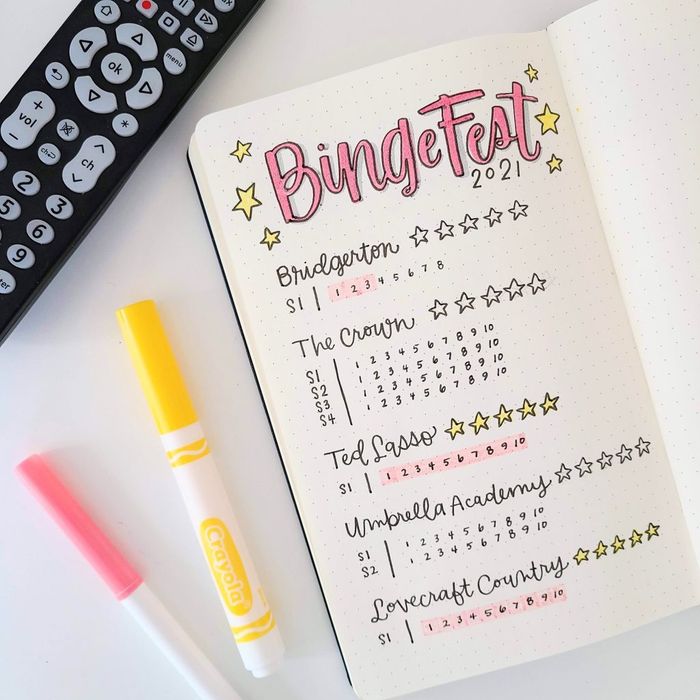 ok
menu
+
vol
-
ch
*
ch
2
3
5
6
9
BingeFest
2021
Bridgerton
S1 | 1 2 3 4 5 6 7 8
The Crown
S1 | 1 2 3 4 5 6 7 8 9 10
S2 | 1 2 3 4 5 6 7 8 9 10
S3 | 1 2 3 4 5 6 7 8 9 10
S4 | 1 2 3 4 5 6 7 8 9 10
Ted Lasso
S1 | 1 2 3 4 5 6 7 8 9 10
Umbrella Academy
S1 | 1 2 3 4 5 6 7 8 9 10
S2 | 1 2 3 4 5 6 7 8 9 10
Lovecraft Country
S1 | 1 2 3 4 5 6 7 8 9 10
Crayola